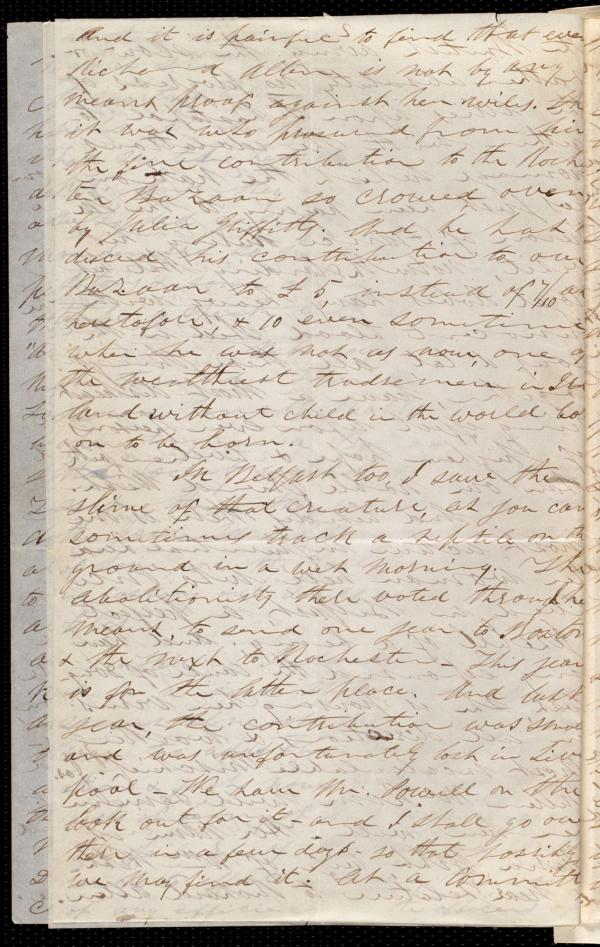 and it is painful to find that even
Richard Allen is not by any
means proof against her wiles. He
it was who procured from
the fine contribution to the Roche
ter Bazaar so crowed over
by Julia Griffiths. And he has
duced his contribution to our
Bazaar to £5, instead of 7/10 as
heretofore, & 10 even sometime
when he was not as now, one of
the wealthiest tradesmen in Ire
land without child in the world bo
or to be born.
In Belfast too, I saw the
slime of that creature, as you can
sometimes track a reptile on th
ground in a wet morning. The
abolitionists there voted through he
means, to send one year to Boston
& the next to Rochester - This year
is for the latter place. And last
year, the contribution was small
and was unfortunately lost in Live
pool - We have Mr. Powell on the
look out for it - and I shall go ove
there in a few days - so that possibly
we may find it. At a Committ